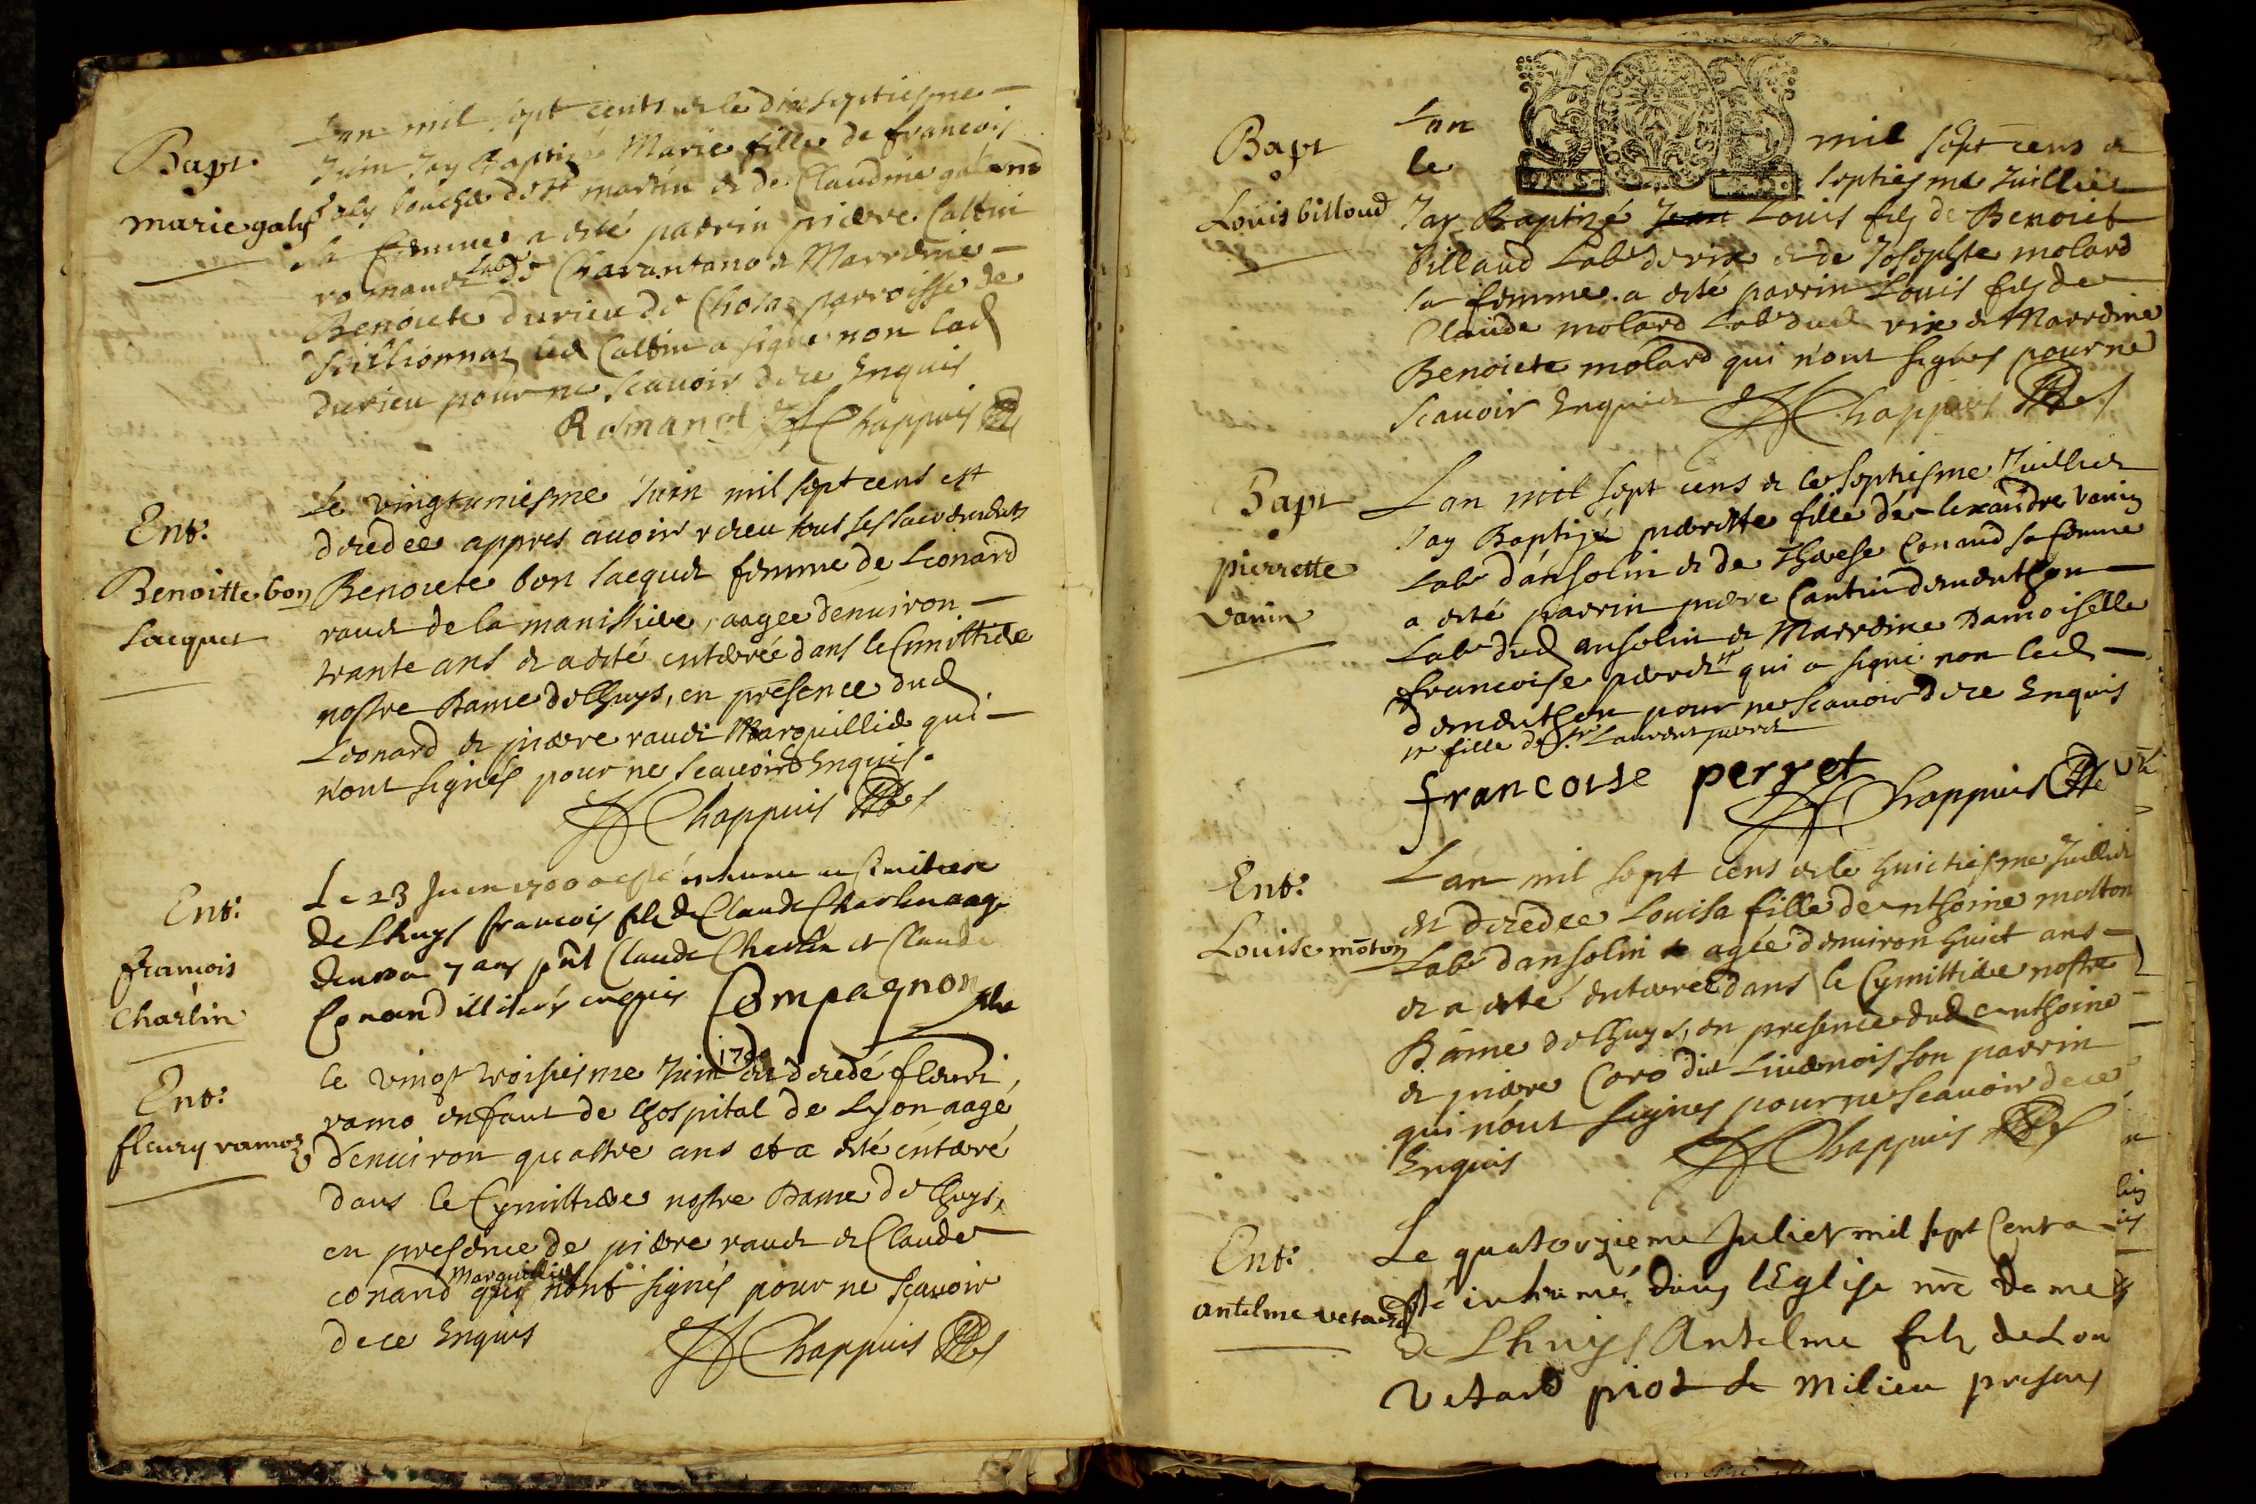 Bapt.
marie galy
Lan mil sept cents et le dixseptiesme
Juin Jay Baptizé Marie fille de francois
galy bouché de st martin et de Claudine
sa femme a esté parrin pierre Cattin
romanet Labr de Charantano et Marreine
Benoicte durieu de Chosas parroisse de
led Cattin a signé non lad
durieu pour ne scauoir de ce Enquis
Romanet Chappuis
Ent:
Benoitte bon
Jacquet
Le vingtuniesme Juin mil sept cens est
decedee appres auoir receu tous ses sacrements
Benoicte bon Jacquet femme de Leonard
raudt de la manissiere, aagee denuiron
trante ans et a esté enterrée dans le Cimittiere
nostre Dame de Lhuys, en presence dud
Leonard et pierre raudt Marquillier qui
n'ont signés pour ne scauoir Enquis.
Chappuis
Ent:
francois
Charlin
Le 23 Juin 1700 a esté inhumé au Simitiere
de Lhuys francois fils de Claude Charlin aagé
denuiron 7 ans pnt Claude Charlin et Claude
Conand illiterés enquis Compagnon
Ent:
fleury ramoz
le vingt troisiesme Juin 1700 est decedé fleuri
ramo enfant de lhospital de Lyon aagé
denuiron quattre ans et a esté enterré
dans le Cymittiere nostre Dame de Lhuys,
en presence de pierre raudt et Claude
conand Marquilliers qui n'ont signés pour ne scauoir
de ce Enquis Chappuis
Bapt
Louis billoud
Lan mil sept cens et
le septiesme Juilliet
Jay Baptizé Jean Louis fils de Benoict
billaud Labr de rix et de Josephte molard
sa femme. a esté parrin Louis fils de
Claude molard Labr dud rix et Marreine
Benoicte molard qui n'ont signés pour ne
scauoir Enquis Chappuis
Bapt
pierrette
vanin
Lan mil sept cens et le septiesme Juilliet
Jay Baptizé pierrette fille dalexandre vanin
Labr dansolin et de Therese Conand sa femme
a esté parrin pierre Cantin dementhon
Labr dud ansolin et Marreine Damoiselle
francoise perret qui a signé non led
dementhon pour ne scauoir de ce Enquis
fille de Sr Laurent perret
francoise perret Chappuis
Ent:
Louise moton
Lan mil sept cens et le huictiesme Juilliet
est decedee Louise fille danthoine motton
Labr dansolin agée denuiron huict ans
et a esté enterrée dans le Cymittiere nostre
Dame de Lhuys, en presence dud anthoine
et pierre Coro dit Liuernois son parrin
qui n'ont signes pour ne scauoir de ce
Enquis Chappuis
Ent:
antelme vetard
Le quatorzieme Juliet mil sept Cent a
esté inhumé dans lEglise nre Dame
de Lhuys Antelme fils de Lou
Vetard priot de Milieu presens